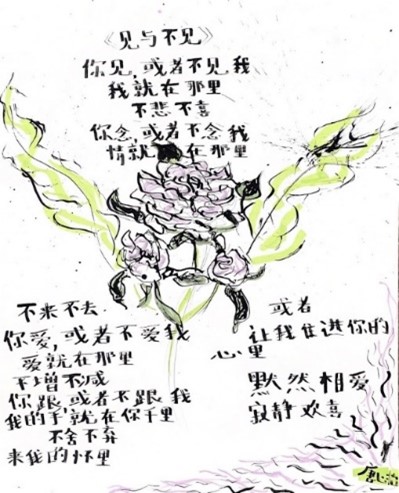 《见与不见》
你见,或者不见我
我就在那里
不悲不喜
你念,或者不念我
情就在那里
不来不去
你爱,或者不爱我
爱就在那里
不增不减
你跟,或者不跟我
我的手,就在你手里
不舍不弃
来我的怀里
或者
让我住进你的
心里
默然相爱
寂静欢喜